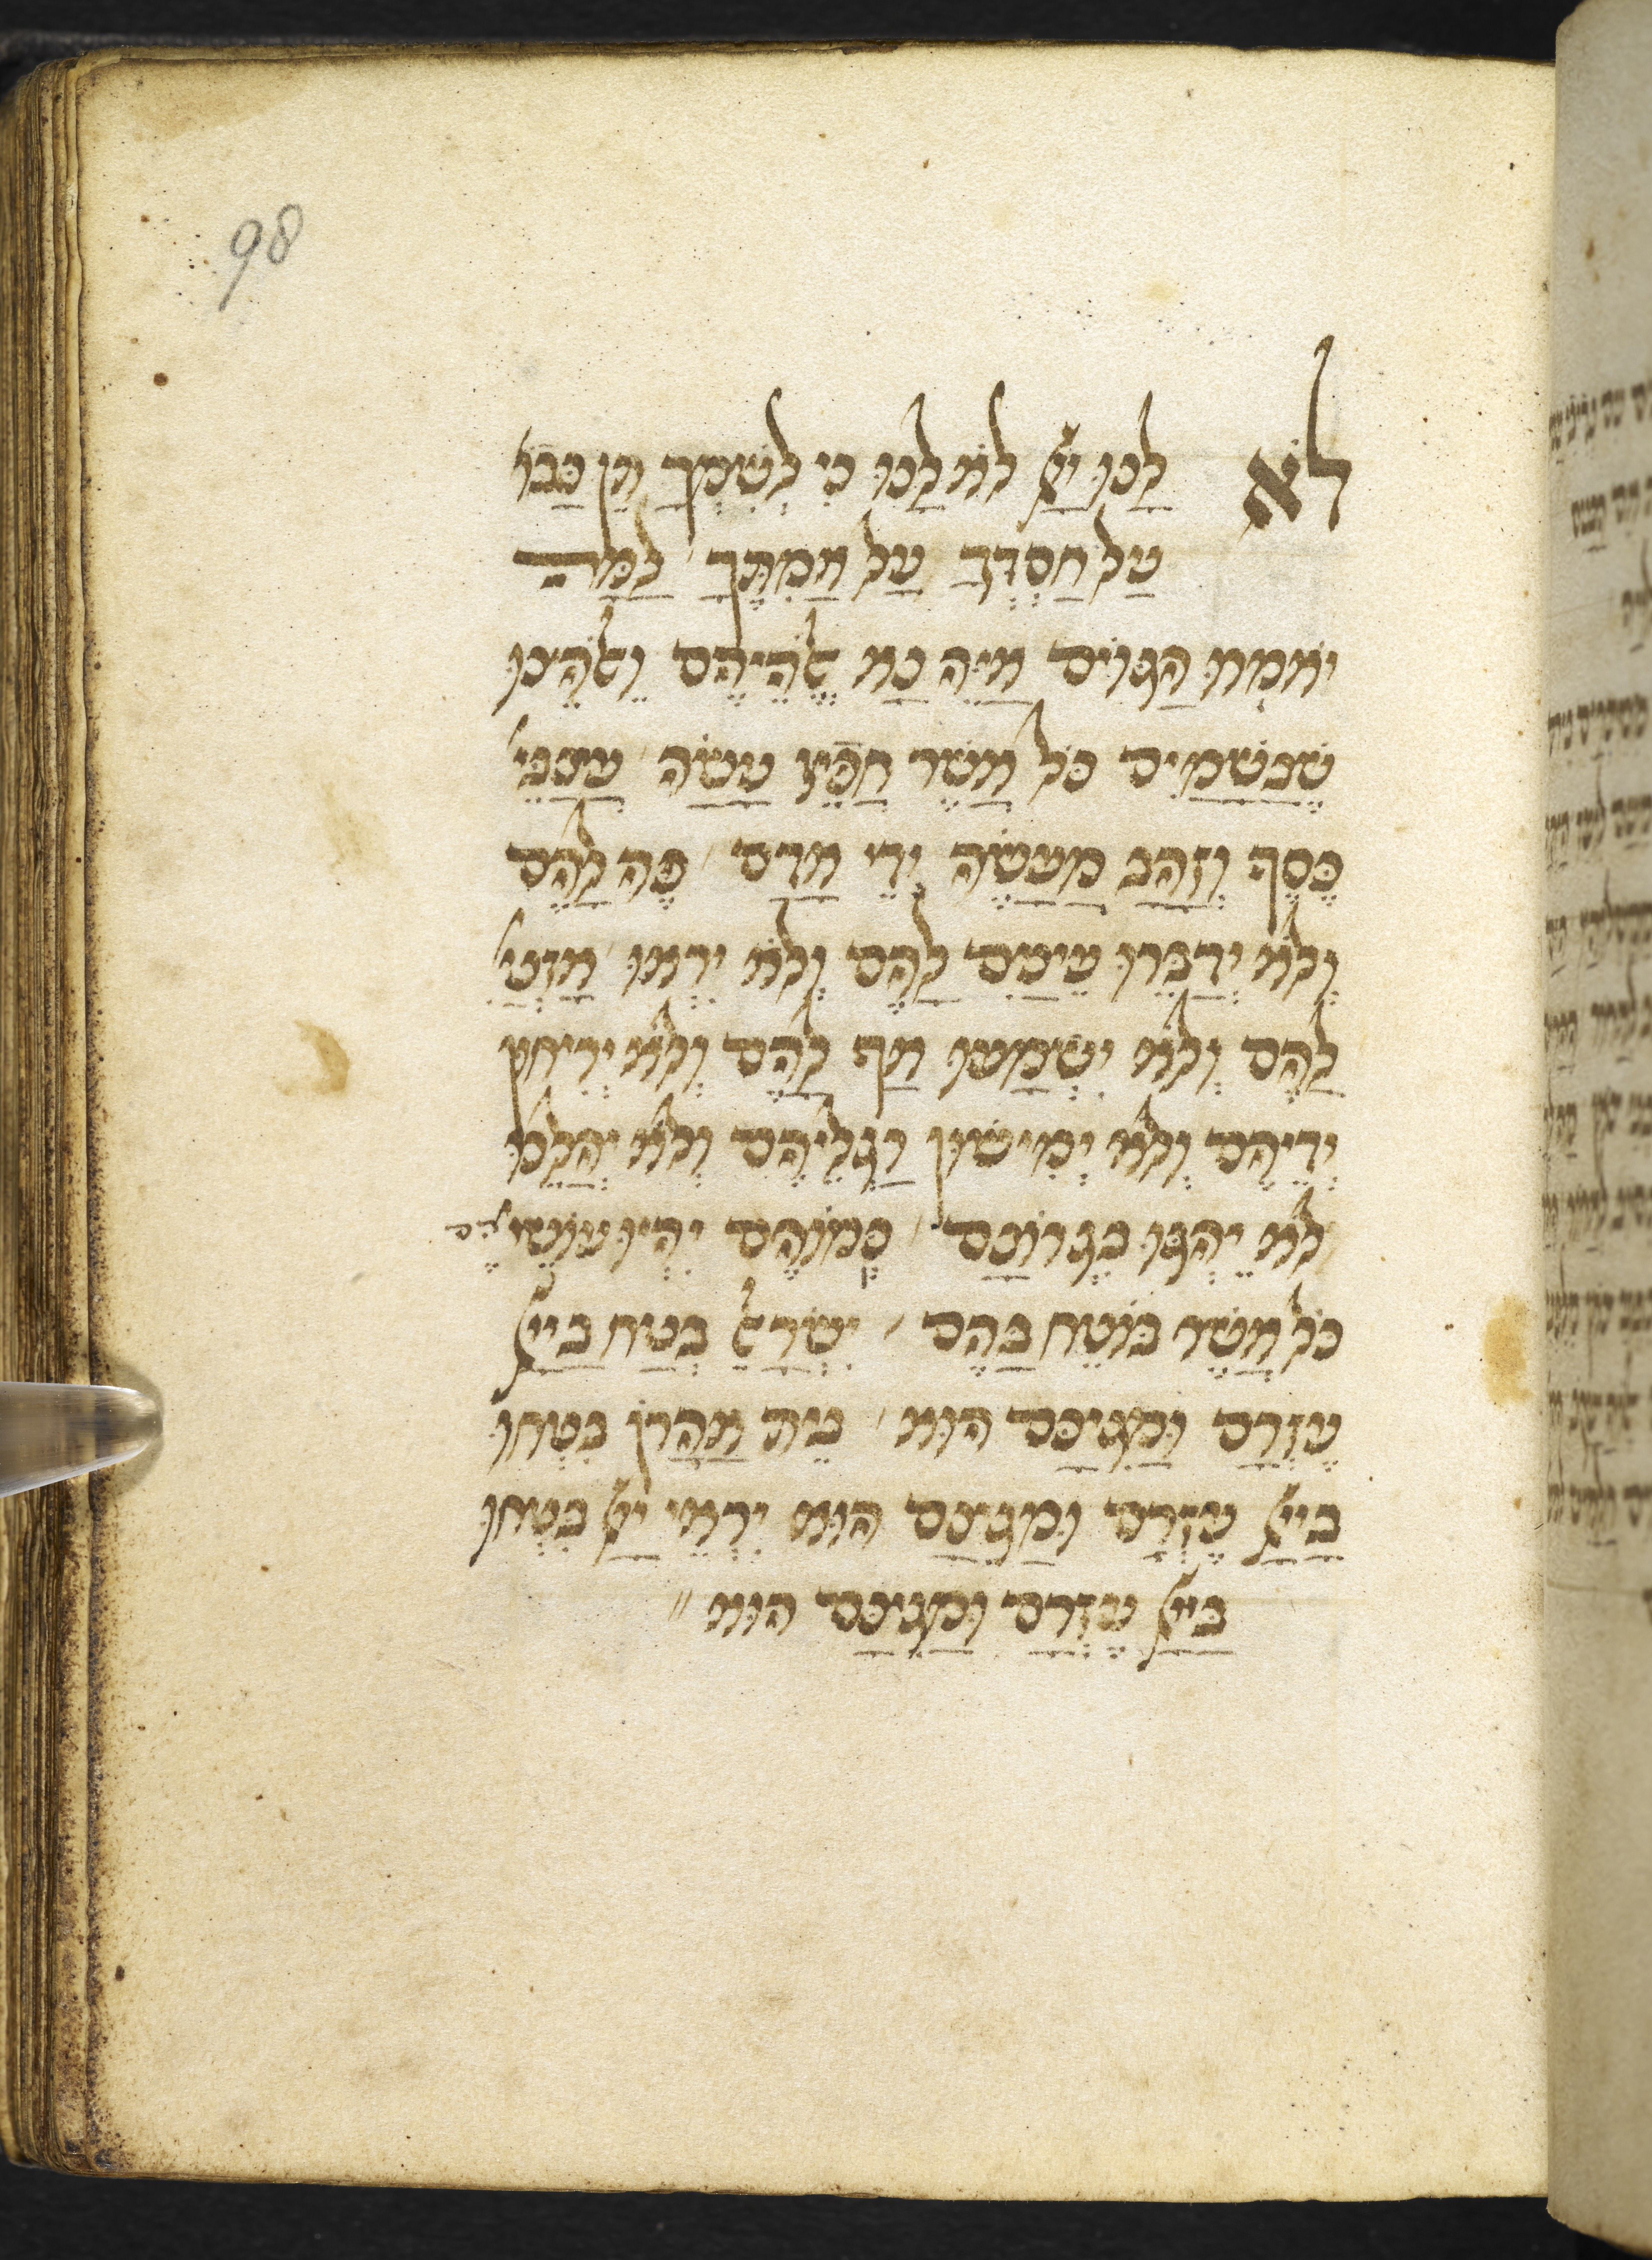 98
לא לנו יי לא לנו כי לשמך תן כבו
על חסדך על אמתך למה
יאמרו הגוים איה נא אלהיהם ואלהינו
שבשמים כל אשר חפץ עשה עצבי
כסף וזהב מעשה ידי אדם פה להם
ולא ידברו עינים להם ולא יראו אזני
להם ולא ישמעו אף להם ולא יריחון
ידיהם ולא ימישון רגליהם ולא יהלכו
לא יהגו בגרונם כמוהם יהיו עושיהם
כל אשר בוטח בהם ישראל בטח ביי
עזרם ומגינם הוא בית אהרן בטחו
ביי עזרם ומגינם הוא יראי יי בטחו
ביי עזרם ומגינם הוא